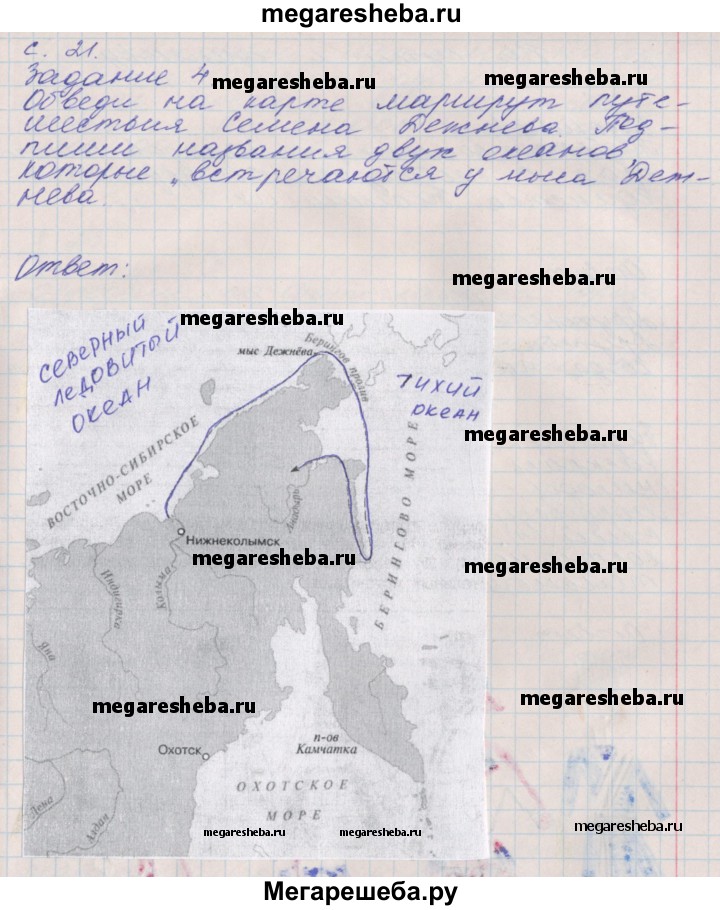 megaresheba.ru
с. 21.
Задание 4
megaresheba.ru
megaresheba.ru
Обведи на карте маршрут путе-
шествия Семена Дежнева. Под-
пиши названия двух океанов,
которые встречаются у мыса Деж-
нева.
Ответ:
megaresheba.ru
СЕВЕРНЫЙ
ЛЕДОВИТЫЙ
ОКЕАН
megaresheba.ru
мыс Дежнёва
Берингов пролив
ТИХИЙ
ОКЕАН
megaresheba.ru
ВОСТОЧНО-СИБИРСКОЕ
МОРЕ
БЕРИНГОВО МОРЕ
Анадырь
Нижнеколымск
megaresheba.ru
megaresheba.ru
Индигирка
Колыма
Яна
megaresheba.ru
megaresheba.ru
п-ов
Камчатка
Охотск
ОХОТСКОЕ
МОРЕ
Лена
Алдан
megaresheba.ru
megaresheba.ru
megaresheba.ru
Мегарешеба.ру